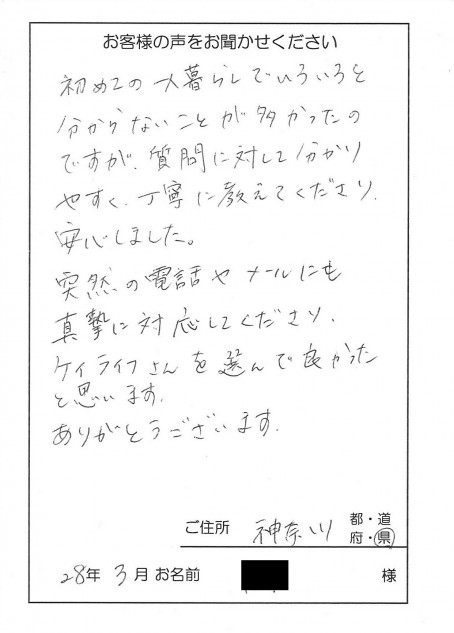 お客様の声をお聞かせください
初めての一人暮らしでいろいろと
分からないことが多かったの
ですが、質問に対して分かり
やすく、丁寧に教えてくださり、
安心しました。
突然の電話やメールにも
真摯に対応してくださり、
ケイライフさんを選んで良かった
と思います。
ありがとうございます。
ご住所 神奈川 都・道
府・県
28年 3月 お名前 様